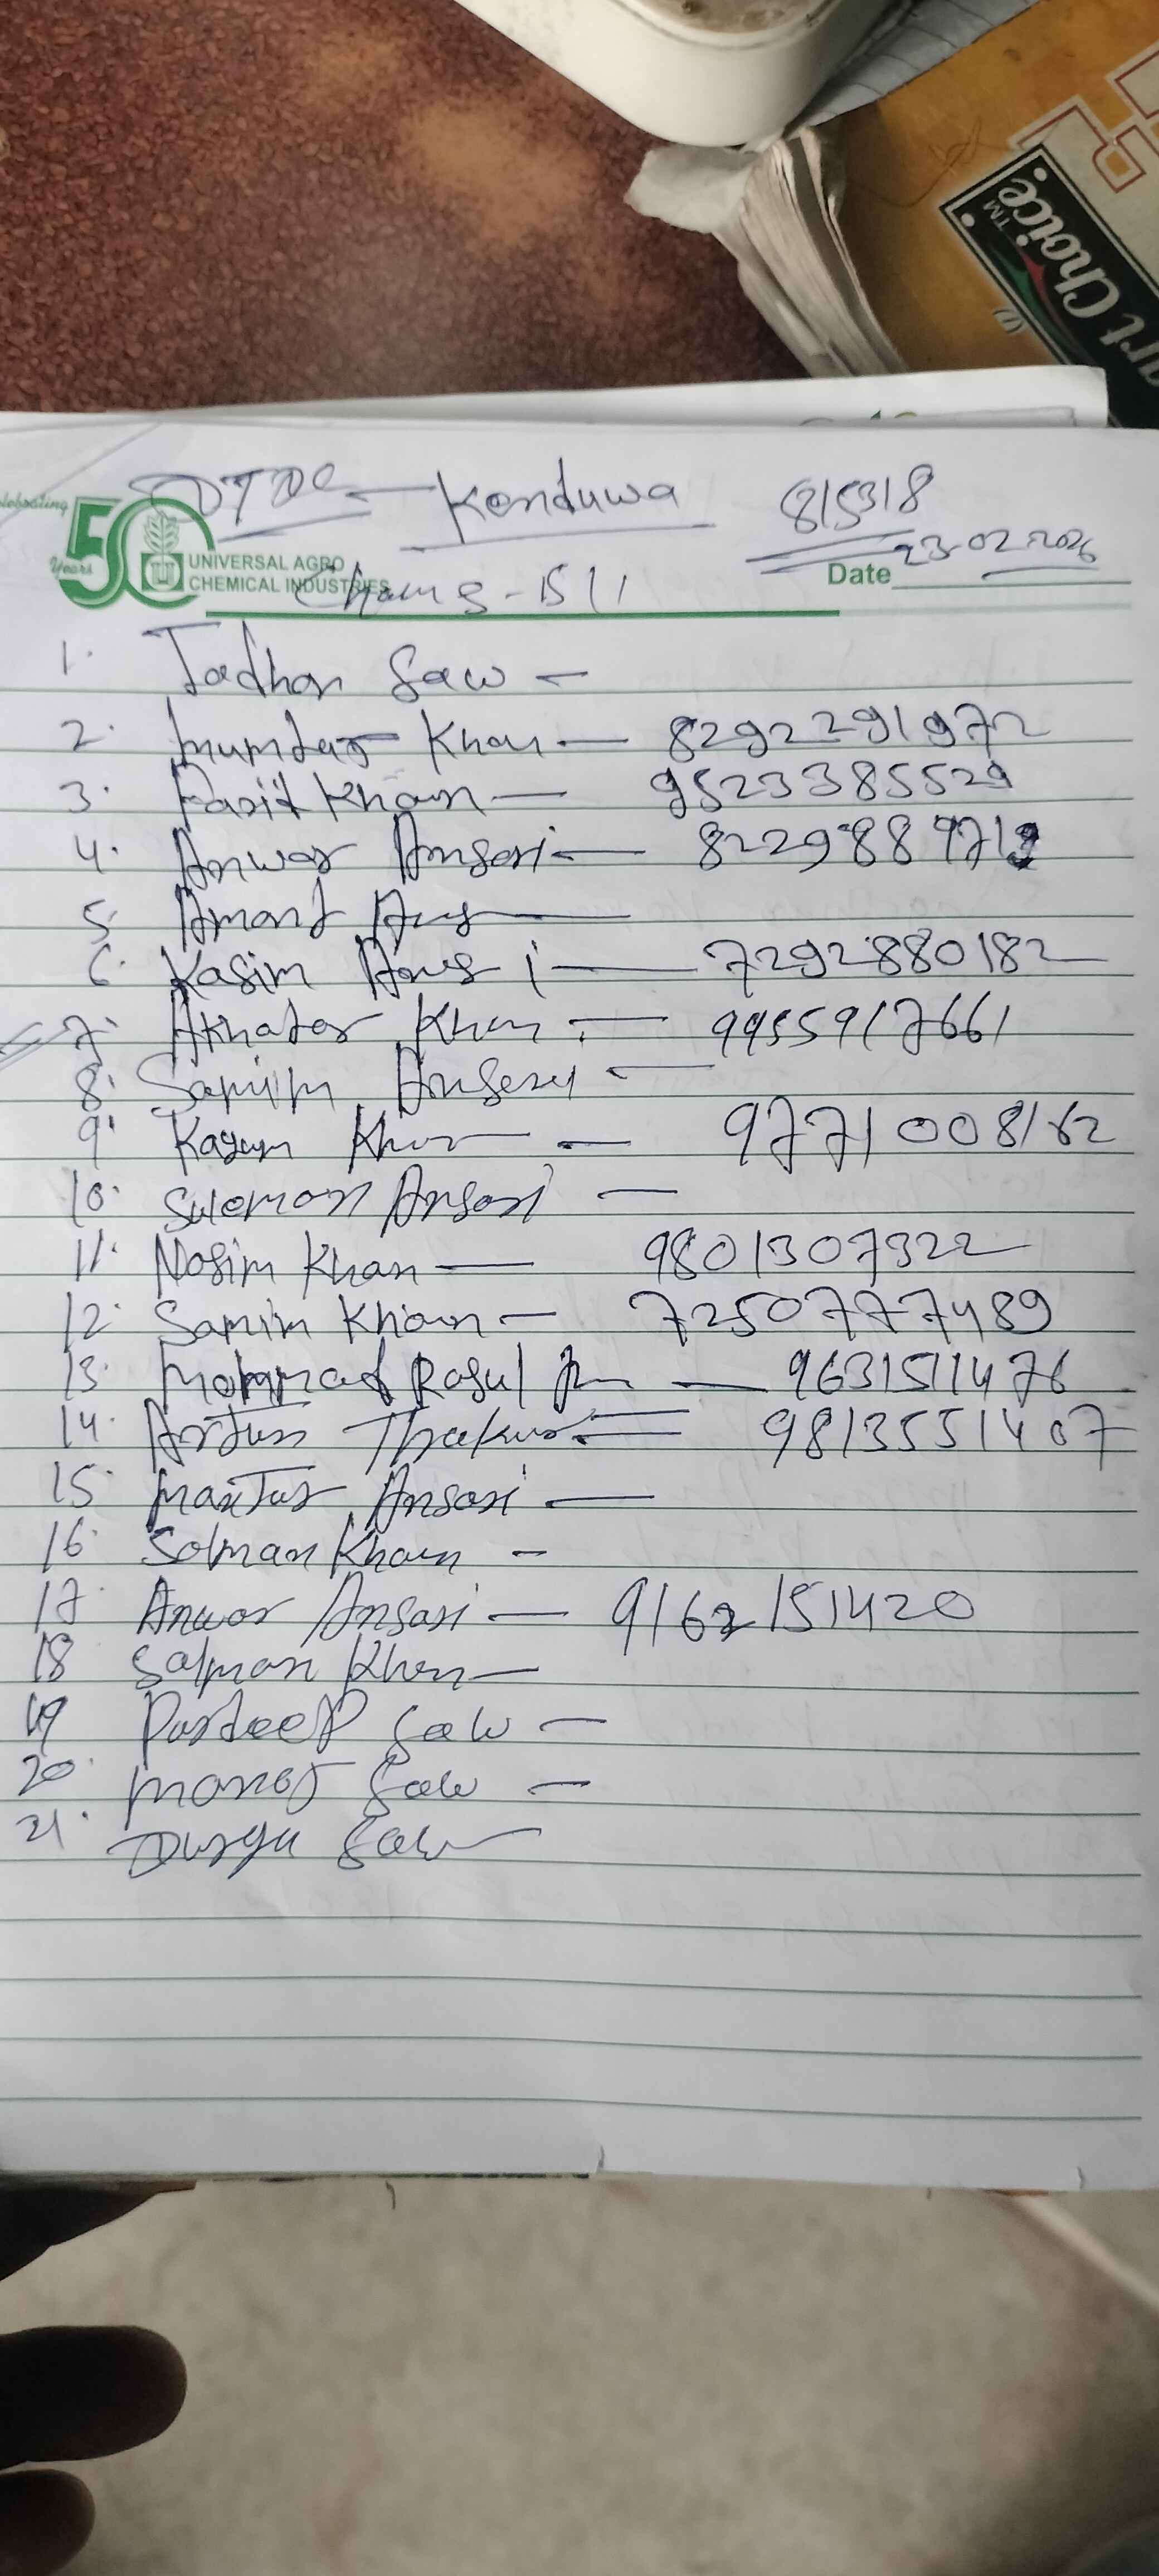 TM
art Choice
DTDC — Kenduwa 815318
Celebrating
50
Years
UNIVERSAL AGRO
CHEMICAL INDUSTRIES
Date 23-02-2026
1. Jadhan Saw —
2. Mumtaz Khan — 8292291972
3. Khan — 9523385529
4. Anwar Ansari —
5. Amant
6. Kasim — 7292880182
7. Akhatar Khan — 9955917661
8. Samim Ansari —
9. Kayum Khan — 9771008162
10. Suleman Ansari —
11. Nasim Khan — 9801307322
12. Samim Khan — 7250777489
13. Mohmmad Rasul — 9631511476
14. Arjun Thakur = 9813551407
15. Ansari —
16. Salman Khan —
17. Anwar Ansari — 9162151420
18 Salman Khan —
19 Pardeep Saw —
20. Manoj Saw —
21. Durga Saw